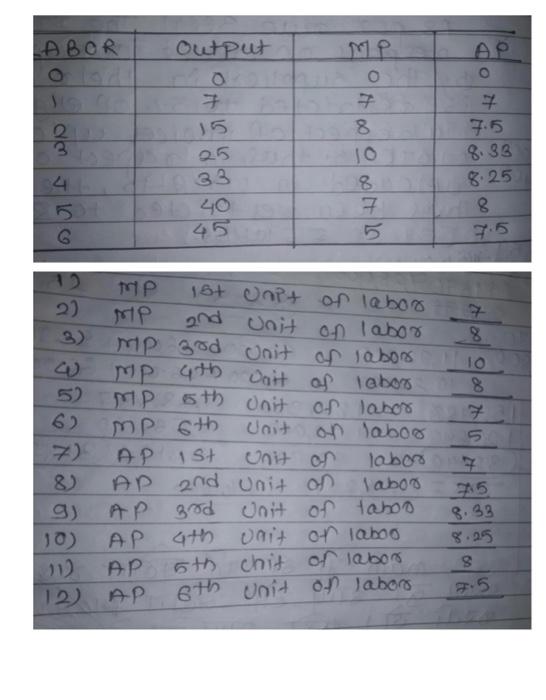 LABOR Output MP AP
0 0 0 0
1 7 7 7
2 15 8 7.5
3 25 10 8.33
4 33 8 8.25
5 40 7 8
6 45 5 7.5
1) MP 1st Unit of labor 7
2) MP 2nd Unit of labor 8
3) MP 3rd Unit of labor 10
4) MP 4th Unit of labor 8
5) MP 5th Unit of labor 7
6) MP 6th Unit of labor 5
7) AP 1st Unit of labor 7
8) AP 2nd Unit of labor 7.5
9) AP 3rd Unit of labor 8.33
10) AP 4th Unit of laboo 8.25
11) AP 5th Unit of labor 8
12) AP 6th Unit of labor 7.5